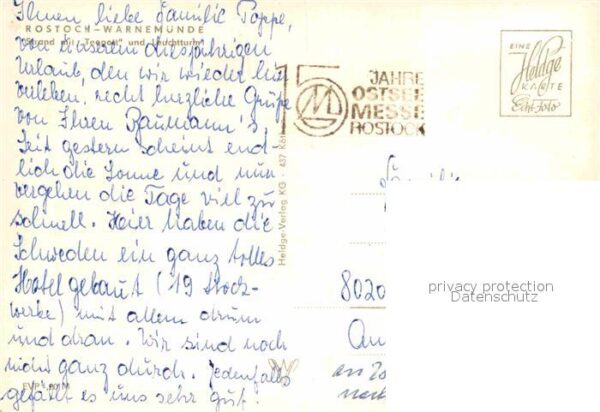 Ihnen, liebe Familie Poppe,
ROSTOCK-WARNEMÜNDE
Strand mit "Teepott" und Leuchtturm
von unserem diesjährigen
Urlaub, den wir wieder hier
verleben, recht herzliche Grüße
von Ihren Baumann's.
Seit gestern scheint end-
lich die Sonne und nur
vergehen die Tage viel zu
schnell. Hier haben die
Schweden ein ganz tolles
Hotel gebaut (19 Stock-
werke) mit allem drum
und dran. Wir sind noch
nicht ganz durch. Jedenfalls
EVP
gefällt es uns sehr gut!
Heldge-Verlag KG · 437 Köt
JAHRE
OSTSEE
MESSE
ROSTOCK
EINE
Heldge
KARTE
Echt-Foto
Familie
8020
privacy protection
Datenschutz